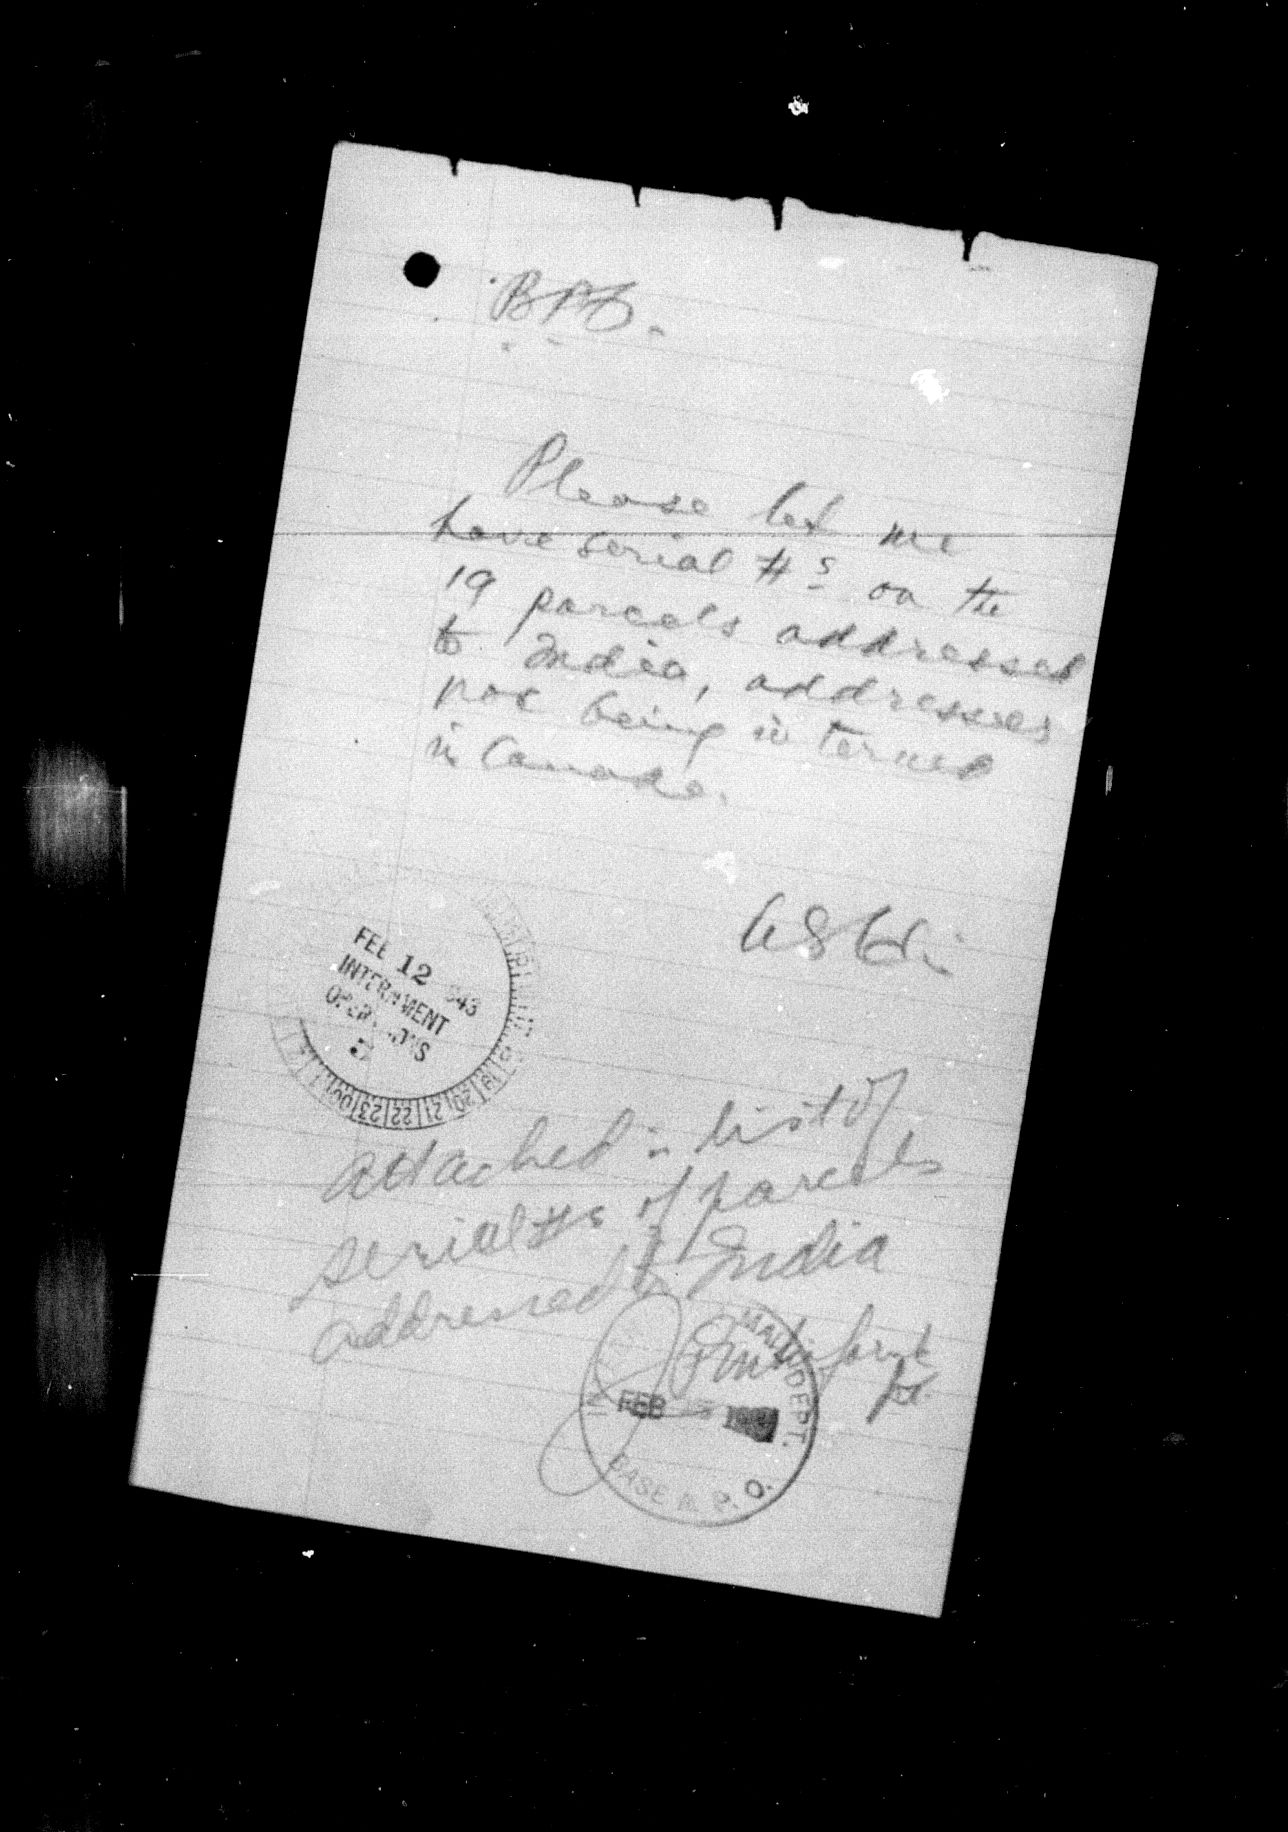 Please let me
have serial #s on the
19 parcels addressed
to India, addresses
not being interned
in Canada.
FEB 12 1943
INTERNMENT
OPERATIONS
5
19 20 21 22 23
attached is list of
serial #s of parcels
addressed to India
MAIL DEPT.
FEB
BASE A. P. O.